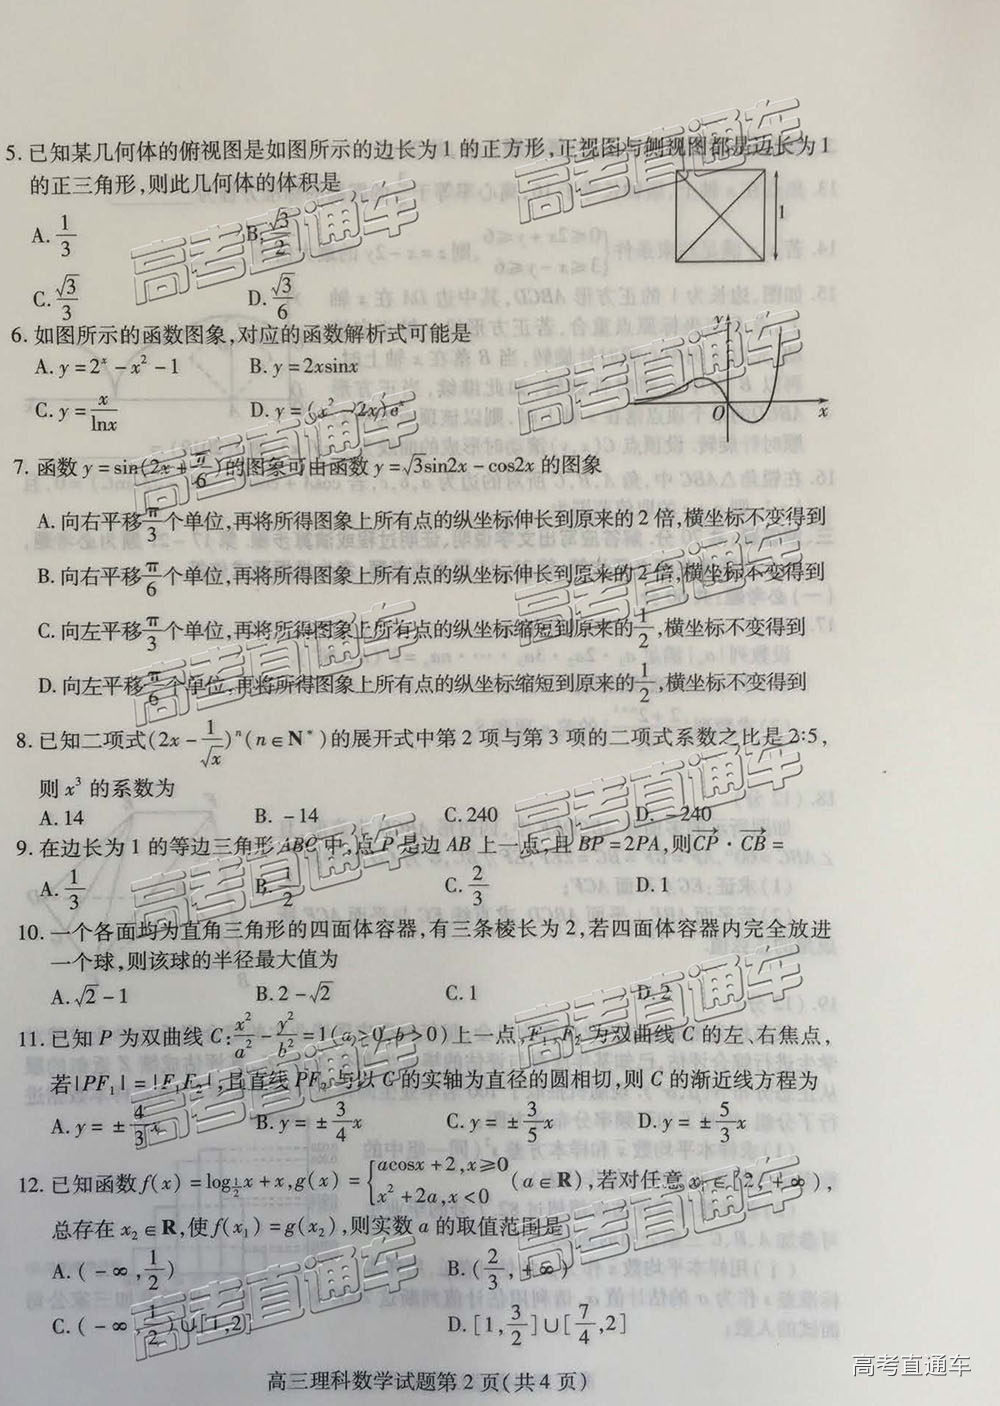 5. 已知某几何体的俯视图是如图所示的边长为1的正方形,正视图与侧视图都是边长为1
的正三角形,则此几何体的体积是
A. 1/3 B. √3/2
1
C. √3/3 D. √3/6
6. 如图所示的函数图象,对应的函数解析式可能是
A. y=2^x-x^2-1 B. y=2xsinx
C. y=x/lnx D. y=(x^2-2x)e^x
y
O x
7. 函数 y=sin(2x+π/6)的图象可由函数 y=√3sin2x-cos2x 的图象
A. 向右平移π/3个单位,再将所得图象上所有点的纵坐标伸长到原来的2倍,横坐标不变得到
B. 向右平移π/6个单位,再将所得图象上所有点的纵坐标伸长到原来的2倍,横坐标不变得到
C. 向左平移π/3个单位,再将所得图象上所有点的纵坐标缩短到原来的1/2,横坐标不变得到
D. 向左平移π/6个单位,再将所得图象上所有点的纵坐标缩短到原来的1/2,横坐标不变得到
8. 已知二项式(2x-1/√x)^n(n∈N*)的展开式中第2项与第3项的二项式系数之比是2:5,
则 x^3 的系数为
A. 14 B. -14 C. 240 D. -240
9. 在边长为1的等边三角形ABC中,点P是边AB上一点,且BP=2PA,则CP·CB=
A. 1/3 B. 1/2 C. 2/3 D. 1
10. 一个各面均为直角三角形的四面体容器,有三条棱长为2,若四面体容器内完全放进
一个球,则该球的半径最大值为
A. √2-1 B. 2-√2 C. 1 D. 2
11. 已知P为双曲线C: x^2/a^2-y^2/b^2=1(a>0,b>0)上一点,F₁,F₂为双曲线C的左、右焦点,
若|PF₁|=|F₁F₂|,且直线PF₂与以C的实轴为直径的圆相切,则C的渐近线方程为
A. y=±4/3x B. y=±3/4x C. y=±3/5x D. y=±5/3x
12. 已知函数f(x)=log_{1/2}x+x,g(x)={acosx+2,x≥0 x^2+2a,x<0 (a∈R),若对任意x₁∈[2,+∞),
总存在x₂∈R,使f(x₁)=g(x₂),则实数a的取值范围是
A. (-∞,1/2) B. (2/3,+∞)
C. (-∞,1/2)∪[1,2] D. [1,3/2]∪[7/4,2]
高三理科数学试题第2页(共4页)
高考直通车